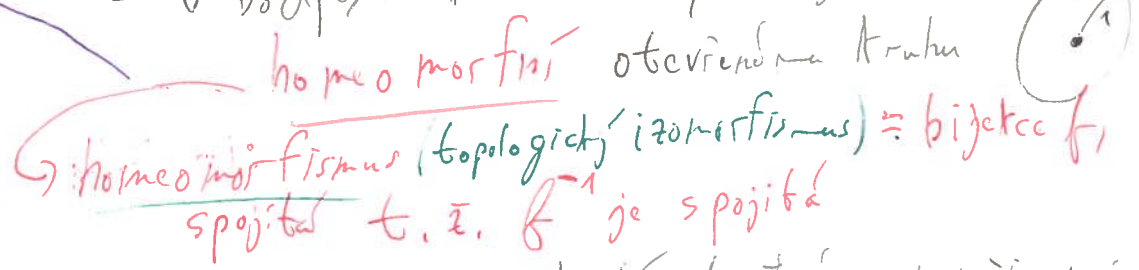 homeomorfní otevřenému kruhu 1
homeomorfismus (topologický izomorfismus) = bijekce f,
spojitá t. ž. f⁻¹ je spojitá